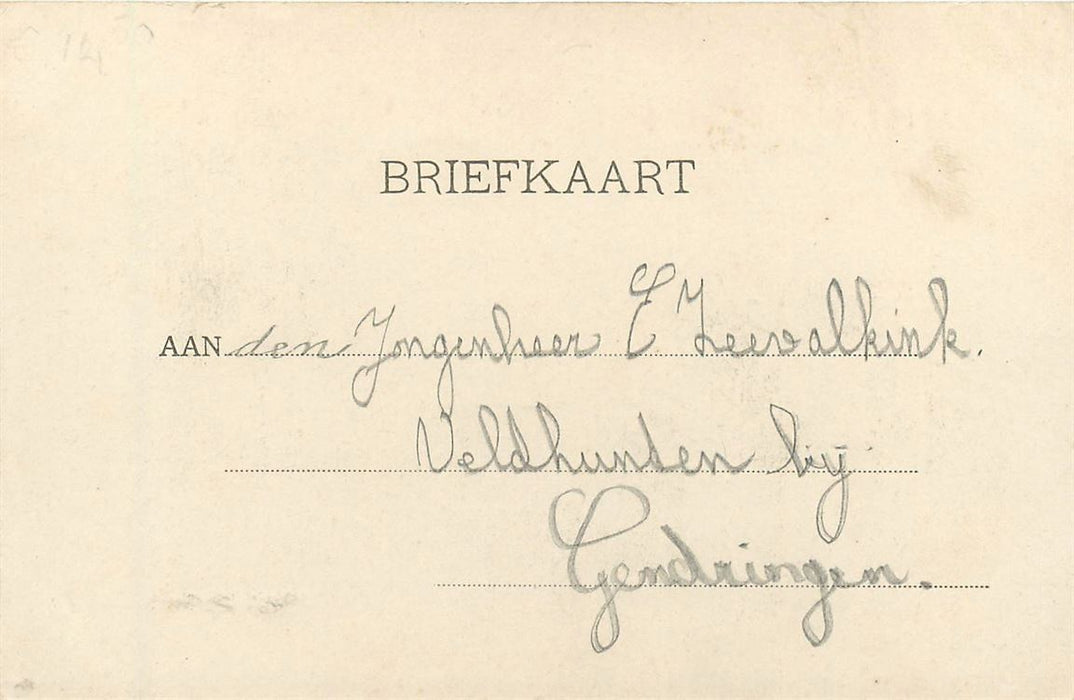 BRIEFKAART
AAN den Jongenheer E Zeevalkink.
Veldhunten bij
Gendringen.